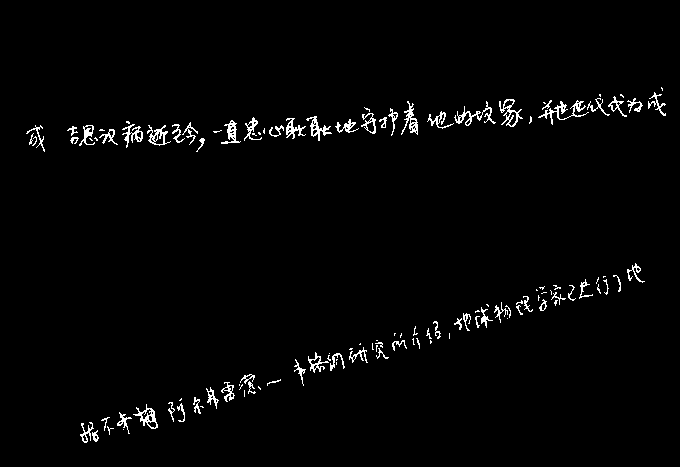 成吉思汉病逝至今,一直忠心耿耿地守护着他的坟冢,并世世代代为成
据不来梅阿尔弗雷德一韦格纳研究所介绍,地球物理学家已进行了地